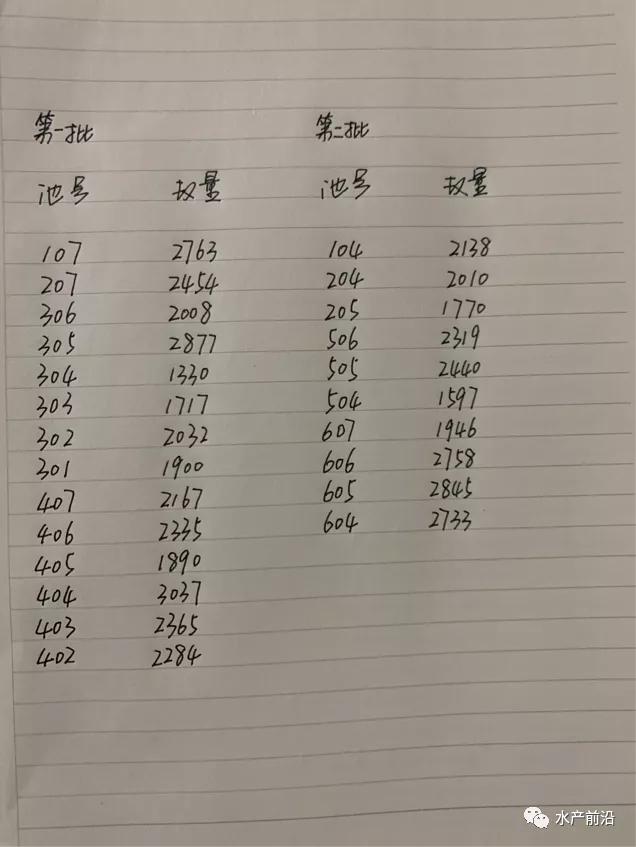 第一批 第二批
池号 权量 池号 权量
107 2763 104 2138
207 2454 204 2010
306 2008 205 1770
305 2877 506 2319
304 1330 505 2440
303 1717 504 1597
302 2032 607 1946
301 1900 606 2758
407 2167 605 2845
406 2335 604 2733
405 1890
404 3037
403 2365
402 2284
水产前沿